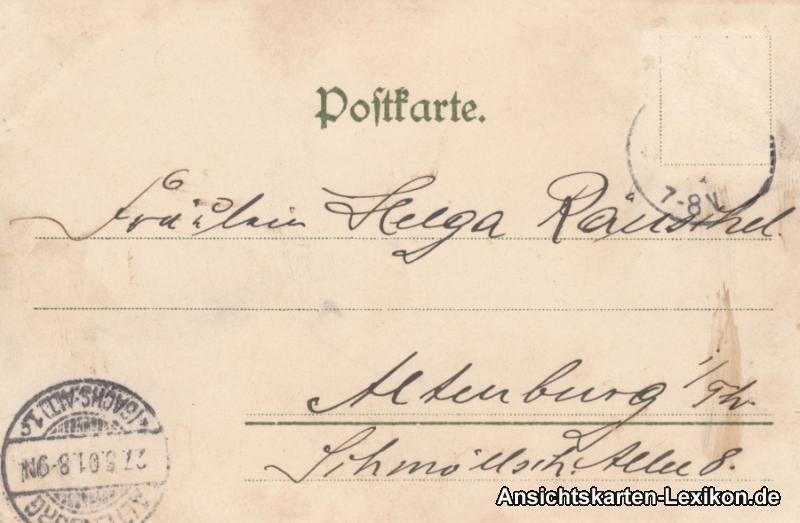 Postkarte.
7-8V
Fräulein Helga Räuschel.
Altenburg i/Th.
Schmöllsche Allee 8.
ALTENBURG
27.5.01.8-9N
(SACHS.-ALT.) 1c
Ansichtskarten-Lexikon.de